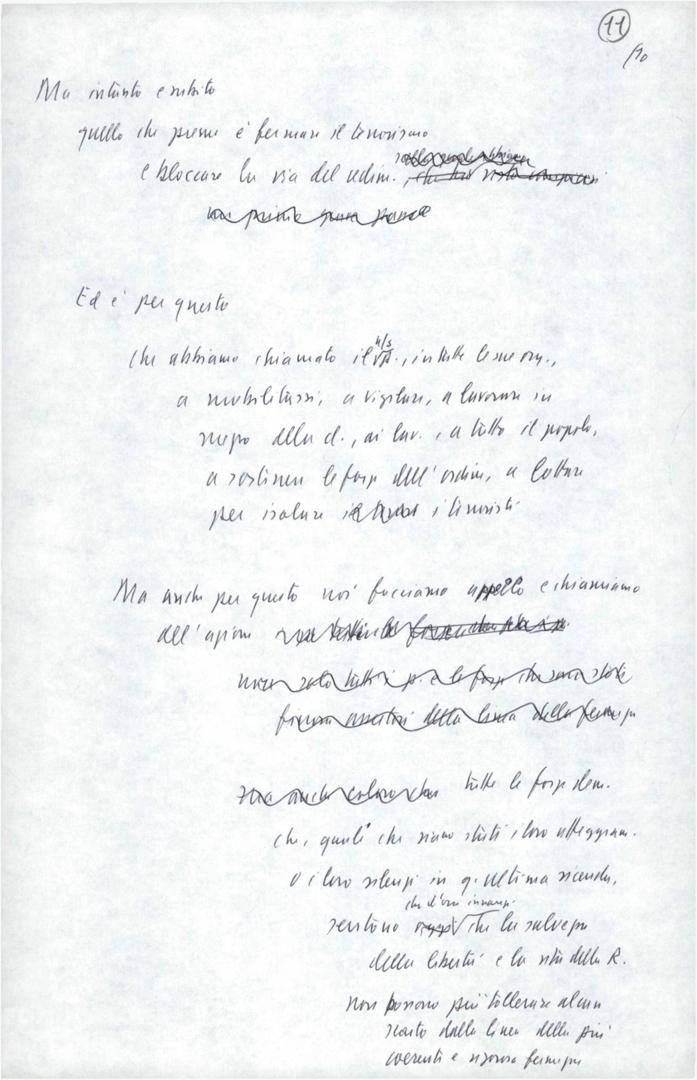 11
/10
Ma intanto e subito
quello che preme è fermare il terrorismo
e bloccare la via del cedim.
Ed è per questo
che abbiamo chiamato il n/s p., in tutte le sue org.,
a mobilitarsi, a vigilare, a lavorare in
mezzo alla cl., ai lav., a tutto il popolo,
a sostenere le forze dell'ordine, a lottare
per isolare i terroristi
Ma anche per questo noi facciamo appello e chiamiamo
all'azione
non solo tutti i p. e le forze che sono state
finora assertori della linea della fermezza
ma anche coloro che tutte le forze dem.
che, quali che siano stati i loro atteggiam.
o i loro silenzi in q. ultima vicenda,
che d'ora innanzi
sentono oggi che la salvezza
della libertà e la vita della R.
non possono più tollerare alcun
scarto dalla linea della più
coerente e rigorosa fermezza